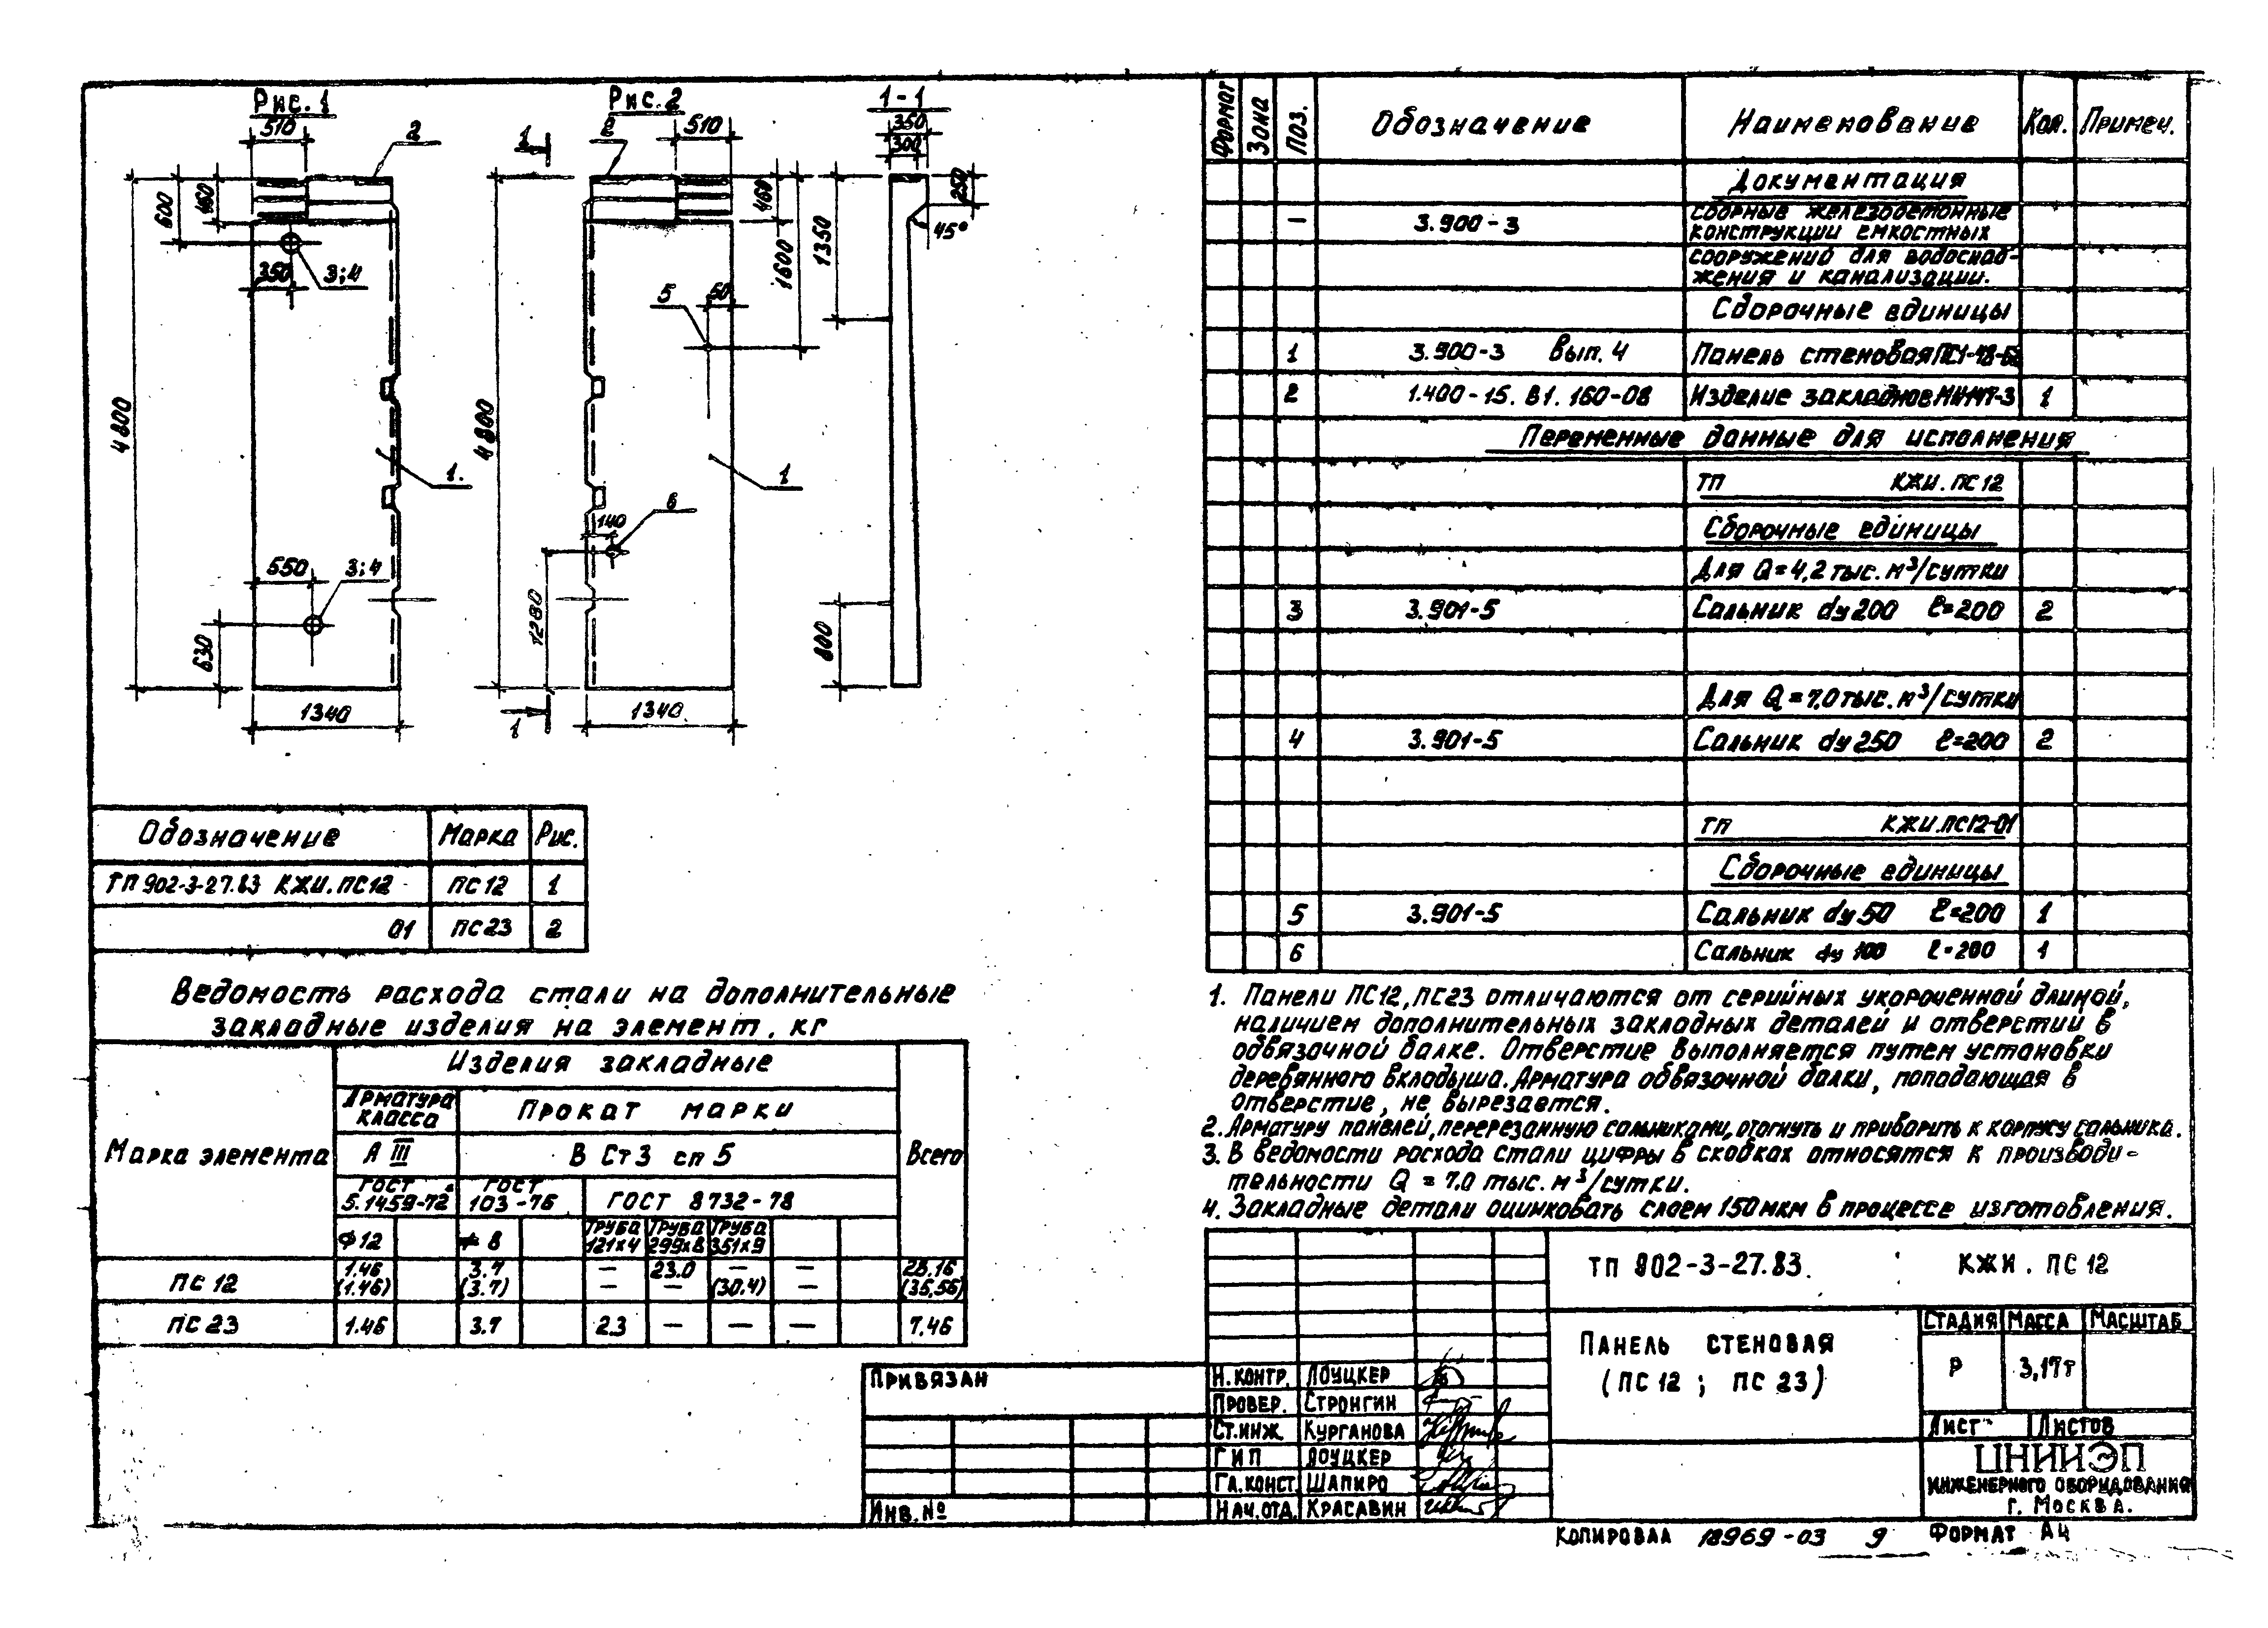 Рис. 1
Рис. 2
1-1
510
2
600
460
350
3;4
4800
1.
550
3;4
630
1340
1
2
510
460
1600
5
50
4800
1
6
140
1280
1340
1
350
300
250
45°
1350
800
Обозначение Марка Рис.
ТП 902-3-27.83 КЖИ.ПС12 ПС12 1
01 ПС23 2
Ведомость расхода стали на дополнительные
закладные изделия на элемент, кг
Марка элемента
Изделия закладные
Всего
Арматура класса
Прокат марки
А III
В Ст3 сп5
ГОСТ 5.1459-72
ГОСТ 103-76
ГОСТ 8732-78
ф12 ≠8 Труба 121х4 Труба 299х8 Труба 351х9
ПС 12 1.46 3.7 — 23.0 — — 28,16
(1.46) (3.7) — — (30.4) — (35,56)
ПС 23 1.46 3.7 2.3 — — — 7.46
Формат Зона Поз. Обозначение Наименование Кол. Примеч.
Документация
— 3.900-3 Сборные железобетонные
конструкции емкостных
сооружений для водоснаб-
жения и канализации.
Сборочные единицы
1 3.900-3 Вып. 4 Панель стеновая
2 1.400-15. В1. 160-08 Изделие закладное 1
Переменные данные для исполнения
ТП КЖИ. ПС 12
Сборочные единицы
Для Q=4,2 тыс. м³/сутки
3 3.901-5 Сальник dу200 ℓ=200 2
Для Q=7,0 тыс. м³/сутки
4 3.901-5 Сальник dу250 ℓ=200 2
ТП КЖИ.ПС12-01
Сборочные единицы
5 3.901-5 Сальник dу50 ℓ=200 1
6 Сальник dу 100 ℓ=200 1
1. Панели ПС12, ПС23 отличаются от серийных укороченной длиной,
наличием дополнительных закладных деталей и отверстий в
обвязочной балке. Отверстие выполняется путем установки
деревянного вкладыша. Арматура обвязочной балки, попадающая в
отверстие, не вырезается.
2. Арматуру панелей, перерезанную сальниками, отогнуть и приварить к корпусу сальника.
3. В ведомости расхода стали цифры в скобках относятся к производи-
тельности Q = 7.0 тыс. м³/сутки.
4. Закладные детали оцинковать слоем 150 мкм в процессе изготовления.
ТП 902-3-27.83. КЖИ. ПС 12
Панель стеновая
(ПС 12; ПС 23)
Стадия Масса Масштаб
Р 3,17т
Лист Листов
ЦНИИЭП
инженерного оборудования
г. Москва.
Н.контр. Лоуцкер
Провер. Стронгин
Ст.инж. Курганова
ГИП Лоуцкер
Гл.конст. Шапиро
Нач.отд. Красавин
Привязан
Инв. №
Копировал 18969-03 9 Формат А4